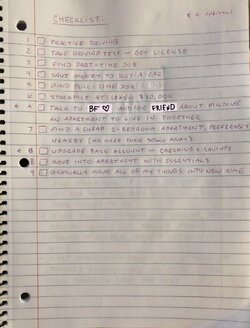 CHECKLIST:
1 PRACTICE DRIVING
2 TAKE DRIVING TEST - GET LICENSE
3 FIND PART-TIME JOB
4 SAVE MONEY TO BUY A CAR
5 FIND FULL-TIME JOB
6 STOCKPILE AT LEAST $10,000
* A TALK TO BF ♡ AND/OR FRIEND ABOUT FINDING
AN APARTMENT TO LIVE IN TOGETHER
7 FIND A CHEAP 2-BEDROOM APARTMENT, PREFERABLY
NEARBY (NO MORE THAN 30MIN AWAY)
* B UPGRADE BANK ACCOUNT - CHECKING + SAVINGS
8 MOVE INTO APARTMENT WITH ESSENTIALS
9 GRADUALLY MOVE ALL OF MY THINGS INTO NEW HOME